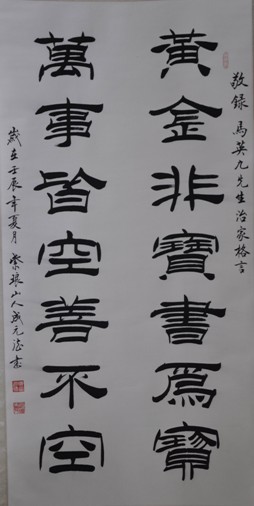 敬録 馬英九先生治家格言
黃金非寶書爲寶
萬事皆空善不空
歲在壬辰年夏月 紫琅山人